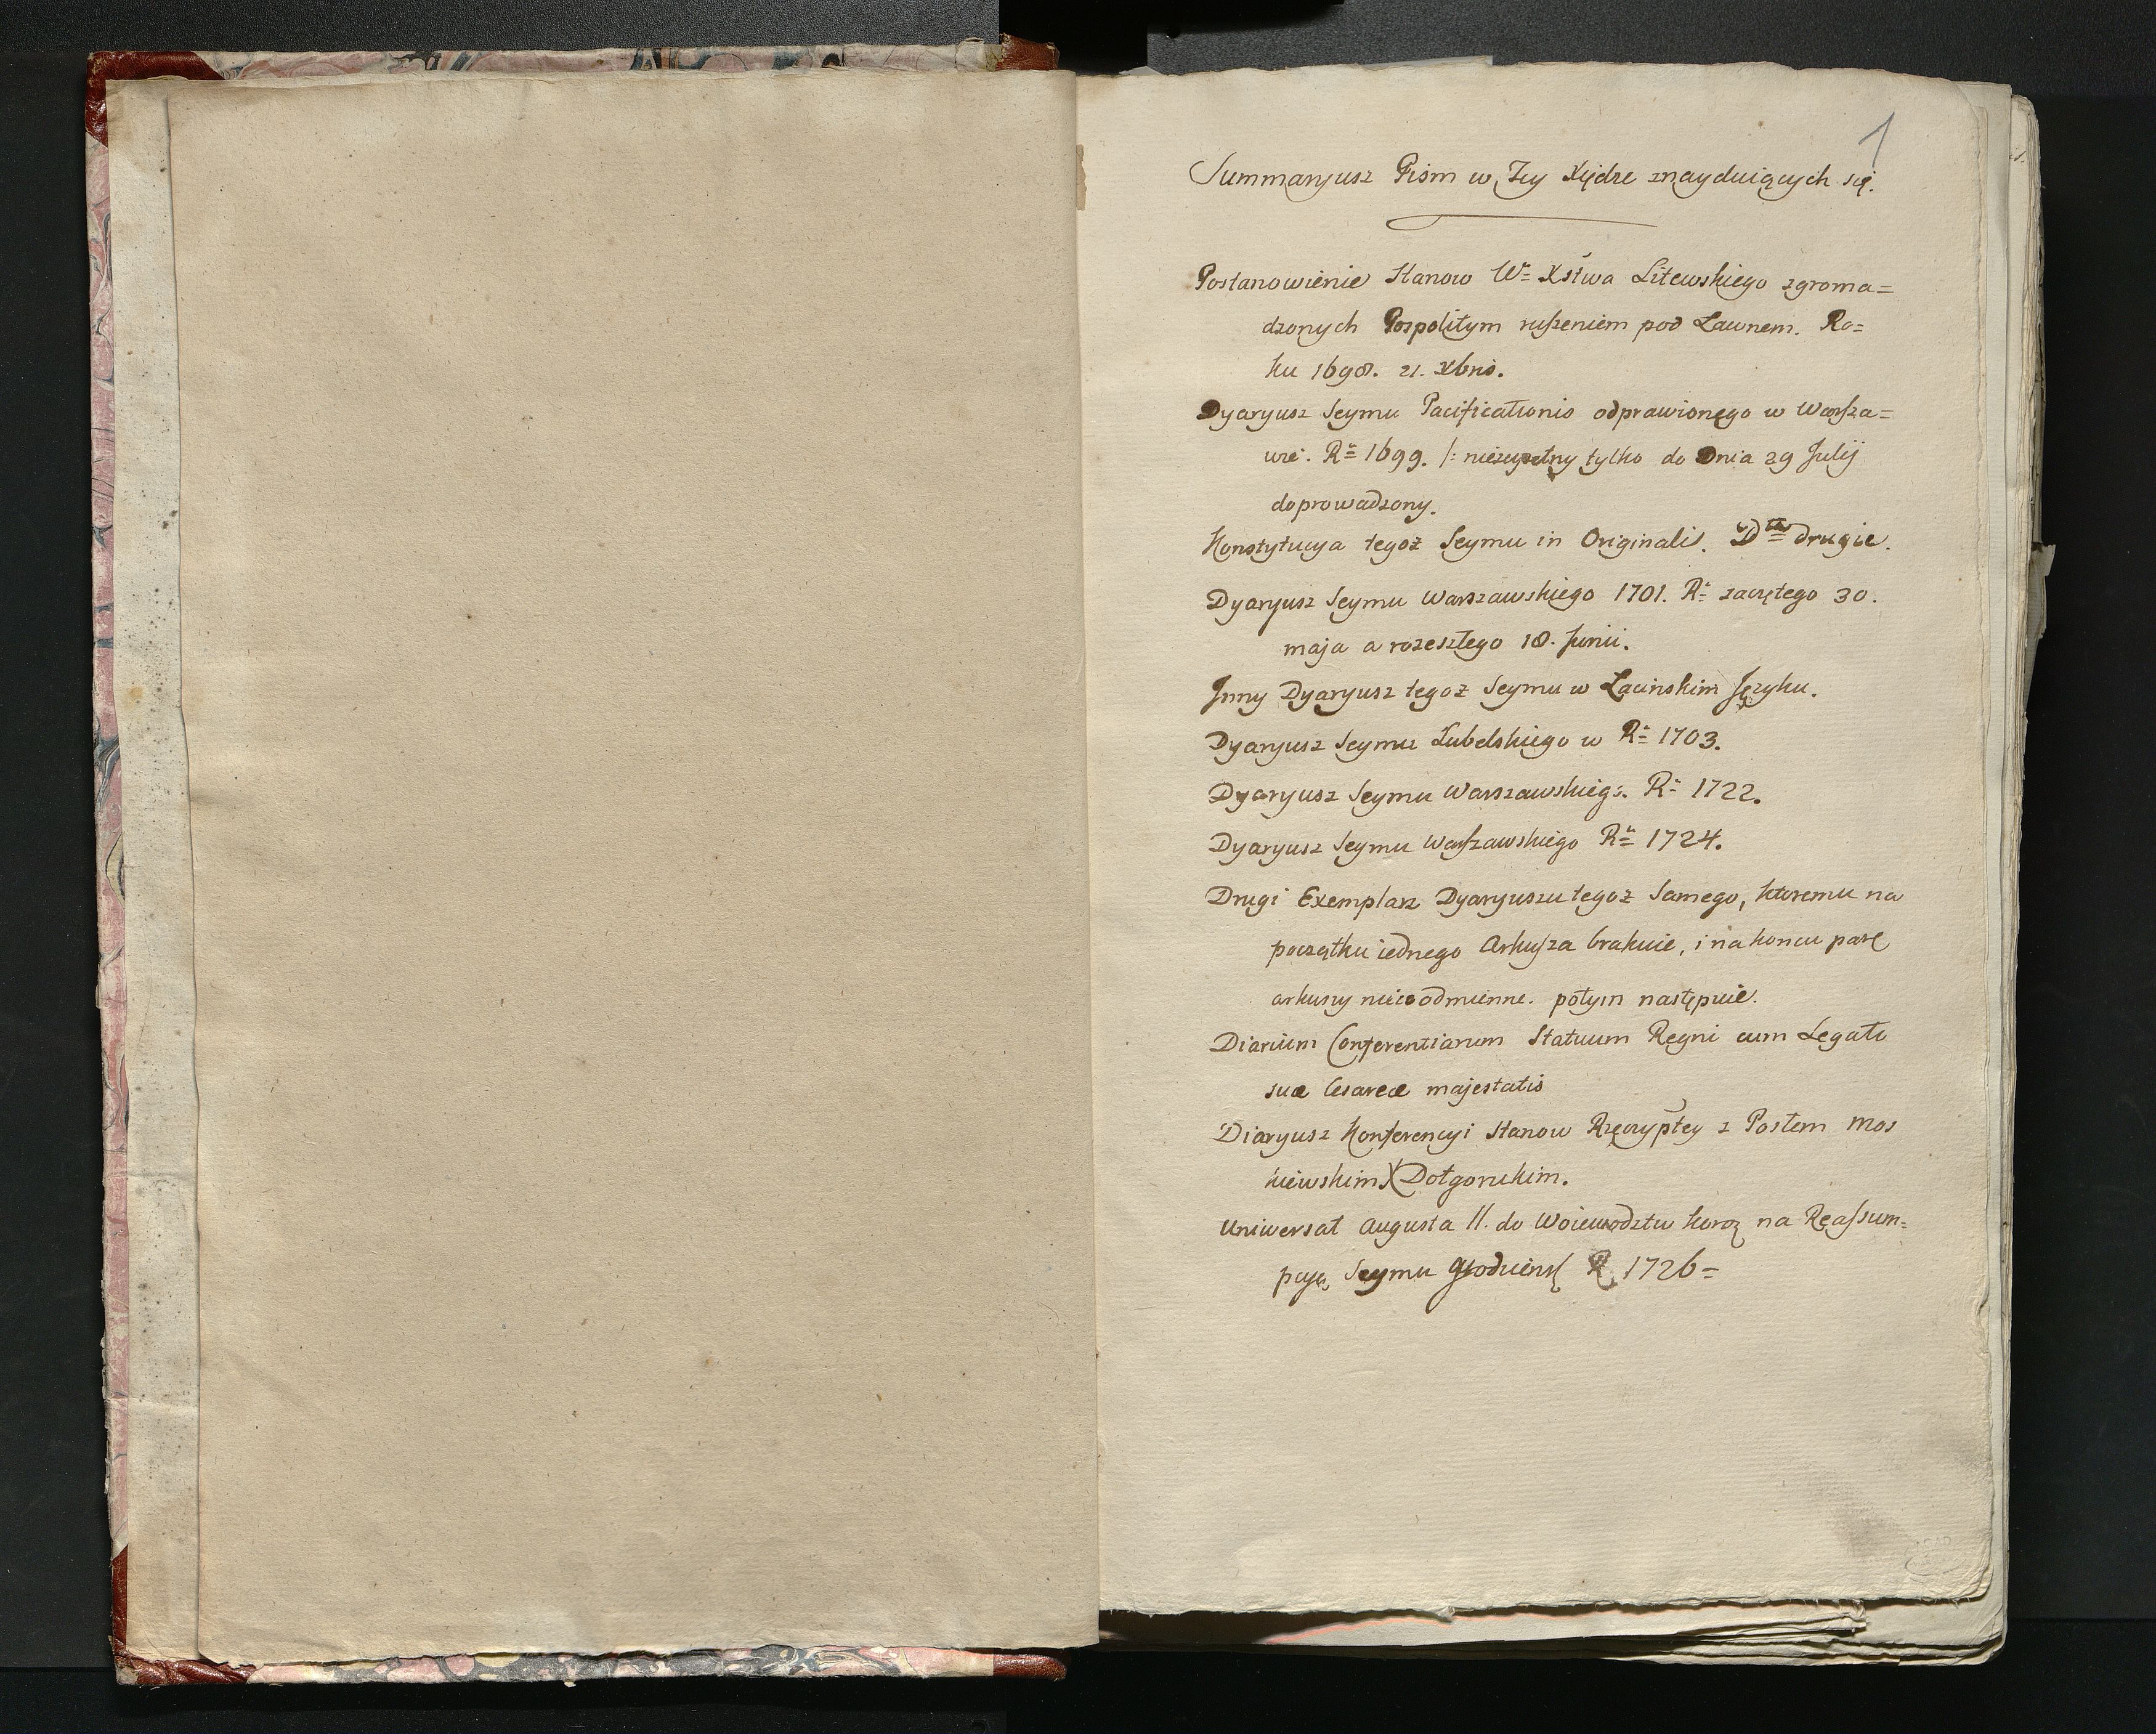 1
Summaryusz Pism w Tey Xiędze znayduiących się.
Postanowienie Stanow Wo= Xstwa Litewskiego zgroma=
dzonych Pospolitym ruszeniem pod Ławnem. Ro=
ku 1698. 21. Xbris.
Dyaryusz Seymu Pacificationis odprawionego w Warsza=
wie. Ru= 1699. /: niezupełny tylko do Dnia 29 Julij
doprowadzony.
Konstytucya tegoż Seymu in Originali. Dtto drugie.
Dyaryusz Seymu Warszawskiego 1701. R: zaczętego 30.
maja a rozeszłego 18. Junii.
Jnny Dyaryusz tegoż Seymu w Łacinskim Języku.
Dyaryusz Seymu Lubelskiego w R= 1703.
Dyaryusz Seymu Warszawskieg: R= 1722.
Dyaryusz Seymu Warszawskiego Ru= 1724.
Drugi Exemplarz Dyaryuszu tegoż Samego, ktoremu na
początku iednego Arkusza brakuie, i na koncu parę
arkuszy nieco odmienne. potym następuie.
Diarium Conferentiarum Statuum Regni cum Legato
suæ Cesareæ majestatis
Diaryusz Konferencyi Stanow Rzeczypltey z Posłem Mos
kiewskim X Dołgorukim.
Uniwersał Augusta II. do Woiewodztw Koroą na Reassum=
pcyą Seymu Grodziensk R 1726=